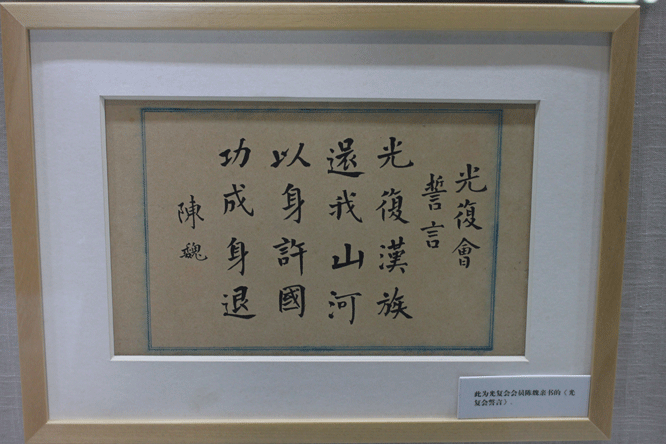 光復會
誓言
光復漢族
還我山河
以身許國
功成身退
陳魏
此为光复会会员陈魏亲书的《光
复会誓言》.